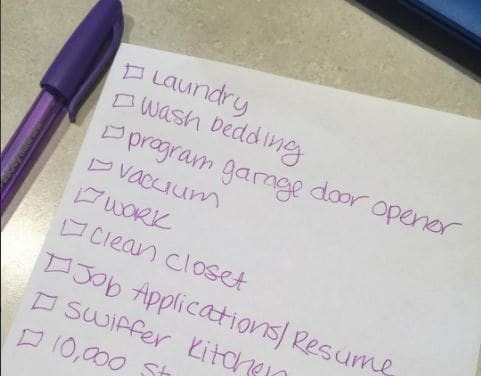 Laundry
Wash bedding
program garage door opener
vacuum
WORK
Clean closet
Job Applications/Resume
Swiffer Kitchen
10,000 st